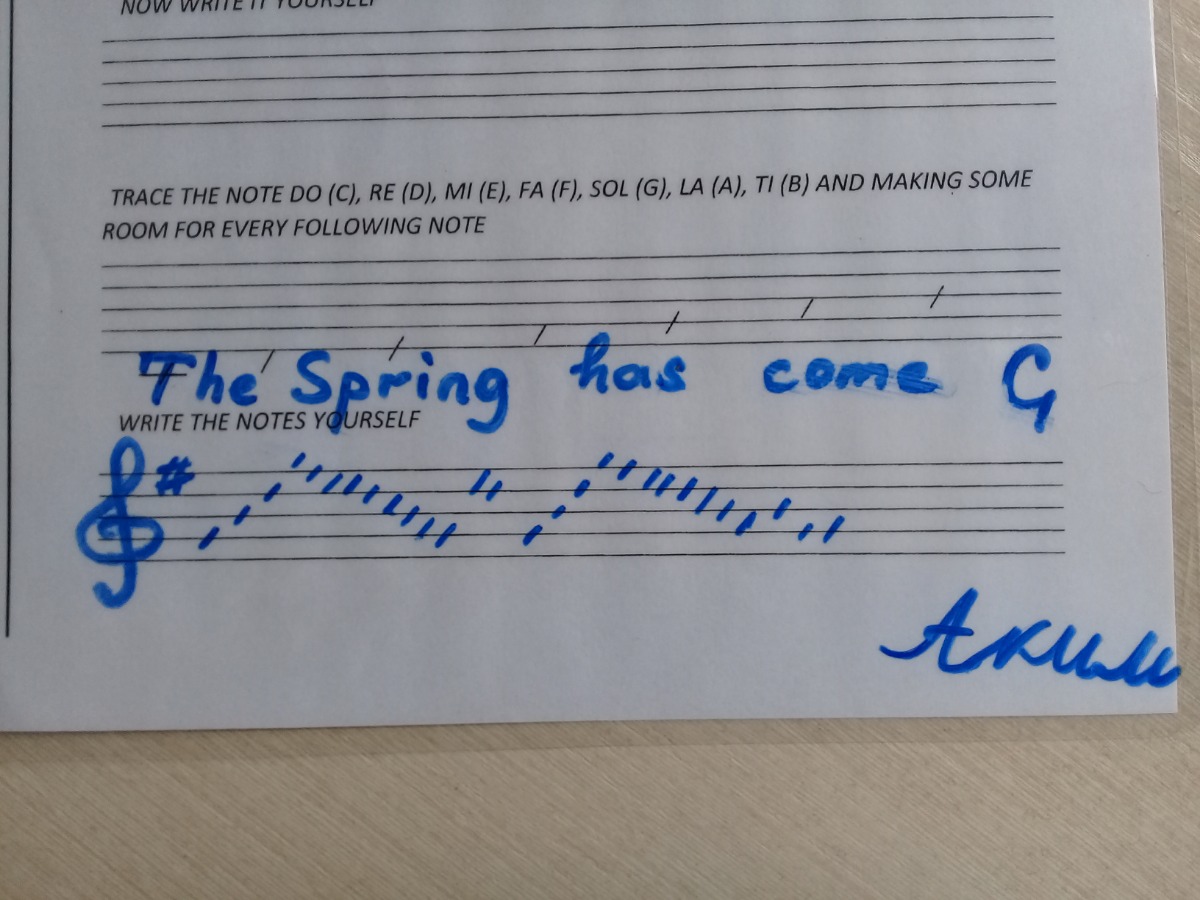 NOW WRITE IT YOURSELF
TRACE THE NOTE DO (C), RE (D), MI (E), FA (F), SOL (G), LA (A), TI (B) AND MAKING SOME
ROOM FOR EVERY FOLLOWING NOTE
The Spring has come G
WRITE THE NOTES YOURSELF
#